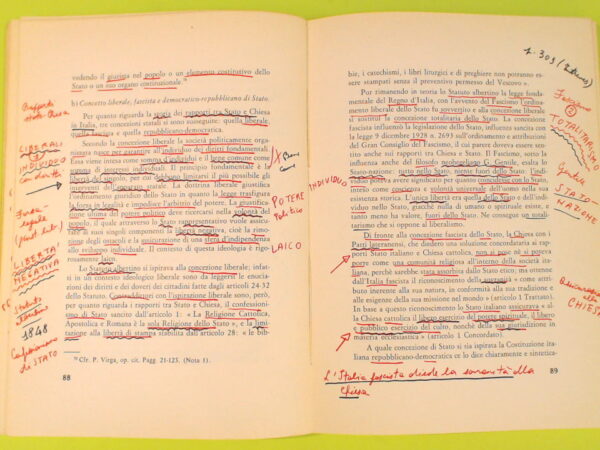 vedendo il giurista nel popolo o un elemento costitutivo dello
Stato o un eso organo costituzionale.¹⁶
b) Concetto liberale, fascista e democratico-repubblicano di Stato.
Per quanto riguarda la teoria dei rapporti tra Stato e Chiesa
in Italia, tre concezioni statali si sono susseguite: quella liberale,
quella fascista e quella repubblicano-democratica.
Secondo la concezione liberale la società politicamente orga-
nizzata nasce per garantire all'individuo dei diritti fondamentali.
Essa viene intesa come somma d'individui e il legge come comune
somma di interessi di individui. Il principio fondamentale è la
libertà del singolo, per cui debbono limitarsi il più possibile gli
interventi dell'apparato statale. La dottrina liberale giustifica
l'ordinamento giuridico dello Stato in quanto la legge trasfigura
la forza in legalità e impedisce l'arbitrio del potere. La giustifica-
zione ultima del potere politico deve ricercarsi nella volontà del
popolo, il quale attraverso lo Stato rappresentativo vuole assicu-
rare ai suoi singoli componenti la libertà negativa, cioè la rimo-
zione degli ostacoli e la assicurazione di una sfera d'indipendenza
allo sviluppo individuale. Il contesto di questa ideologia è rigo-
rosamente laico.
Lo Statuto albertino si ispirava alla concezione liberale; infat-
ti in un contesto ideologico liberale sono da leggere le enuncia-
zioni dei diritti e dei doveri dei cittadini fatte dagli articoli 24-32
dello Statuto. Contraddittori con l'ispirazione liberale sono, però,
per quanto riguarda i rapporti tra Stato e Chiesa, il confessioni-
smo di Stato sancito dall'articolo 1: « La Religione Cattolica,
Apostolica e Romana è la sola Religione dello Stato », e la limi-
tazione alla libertà di stampa stabilita dall'articolo 28: « le bib-
¹⁶ Cfr. P. Virga, op. cit. Pagg. 21-125. (Nota 1).
88
LIBERALI
INDIVIDUO
LIBERTÀ
NEGATIVA
Statuto
1848
Confessionismo
di STATO
POTERE
Politico
LAICO
bie, i catechismi, i libri liturgici e di preghiere non potranno es-
sere stampati senza il preventivo permesso del Vescovo ».
Per rimanendo in teoria lo Statuto albertino la legge fonda-
mentale del Regno d'Italia, con l'avvento del Fascismo l'ordina-
mento liberale dello Stato fu sovvertito e alla concezione liberale
si sostituì la concezione totalitaria dello Stato. La concezione
fascista influenzò la legislazione dello Stato, influenza sancita con
la legge 9 dicembre 1928 n. 2693 sull'ordinamento e attribuzioni
del Gran Consiglio del Fascismo, il cui parere doveva essere senti-
to anche sui rapporti tra Chiesa e Stato. Il Fascismo, sotto la
influenza anche del filosofo neohegeliano G. Gentile, esalta lo
Stato-nazione: tutto nello Stato, niente fuori dello Stato. l'indi-
viduo
inteso come coscienza e volontà universale dell'uomo nella sua
esistenza storica. L'unica libertà era quella dello Stato e dell'indi-
viduo nello Stato, giacché nulla di umano o spirituale esiste, e
tanto meno ha valore, fuori dello Stato. Ne consegue un totali-
tarismo che si oppone al liberalismo.
Di fronte alla concezione fascista dello Stato, la Chiesa con i
Patti lateranensi, che dandero una soluzione concordataria ai rap-
porti tra Stato italiano e Chiesa cattolica, non si pose né si poteva
porre come una comunità religiosa all'interno della società ita-
liana, perché sarebbe stata assorbita dallo Stato etico; ma ottenne
dall'Italia fascista il riconoscimento della sovranità « come attri-
buto inerente alla sua natura, in conformità alla sua tradizione
e alle esigenze della sua missione nel mondo » (articolo 1 Trattato).
In base a questo riconoscimento lo Stato italiano assicurava « al-
la Chiesa cattolica il libero esercizio del potere spirituale, il libero
e pubblico esercizio del culto, nonché della sua giurisdizione in
materia ecclesiastica » (articolo 1 Concordato).
A quale concezione di Stato si sia ispirata la Costituzione ita-
liana repubblicano-democratica ce lo dice chiaramente e sintetica-
89
INDIVIDUO
TOTALITARISMO
Gentile
STATO
NAZIONE
CHIESA
L'Italia fascista diede la sovranità alla
Chiesa